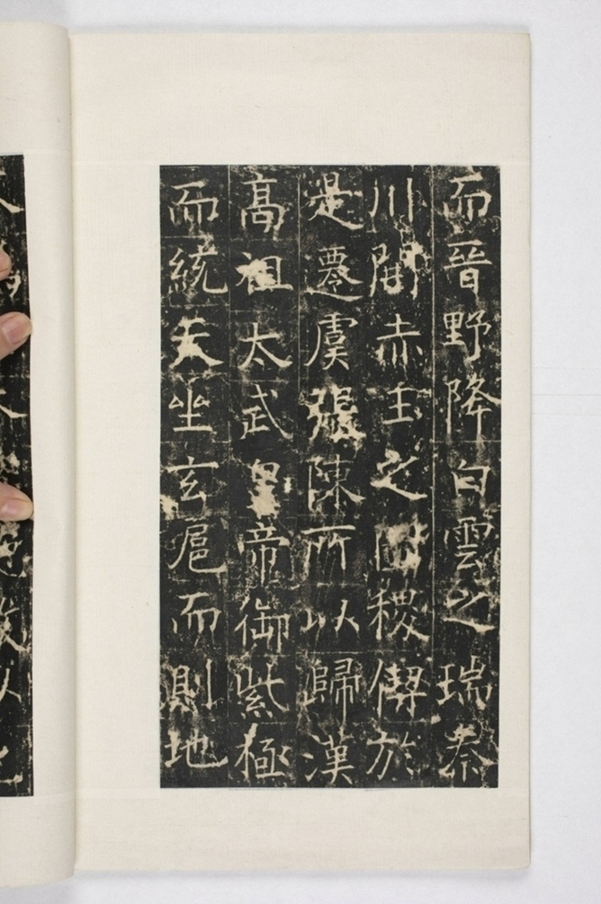 而晉野降白雲之瑞秦
川開赤玉之圖稷偰於
是遷虞張陳所以歸漢
高祖太武皇帝御紫極
而統天坐玄扈而則地